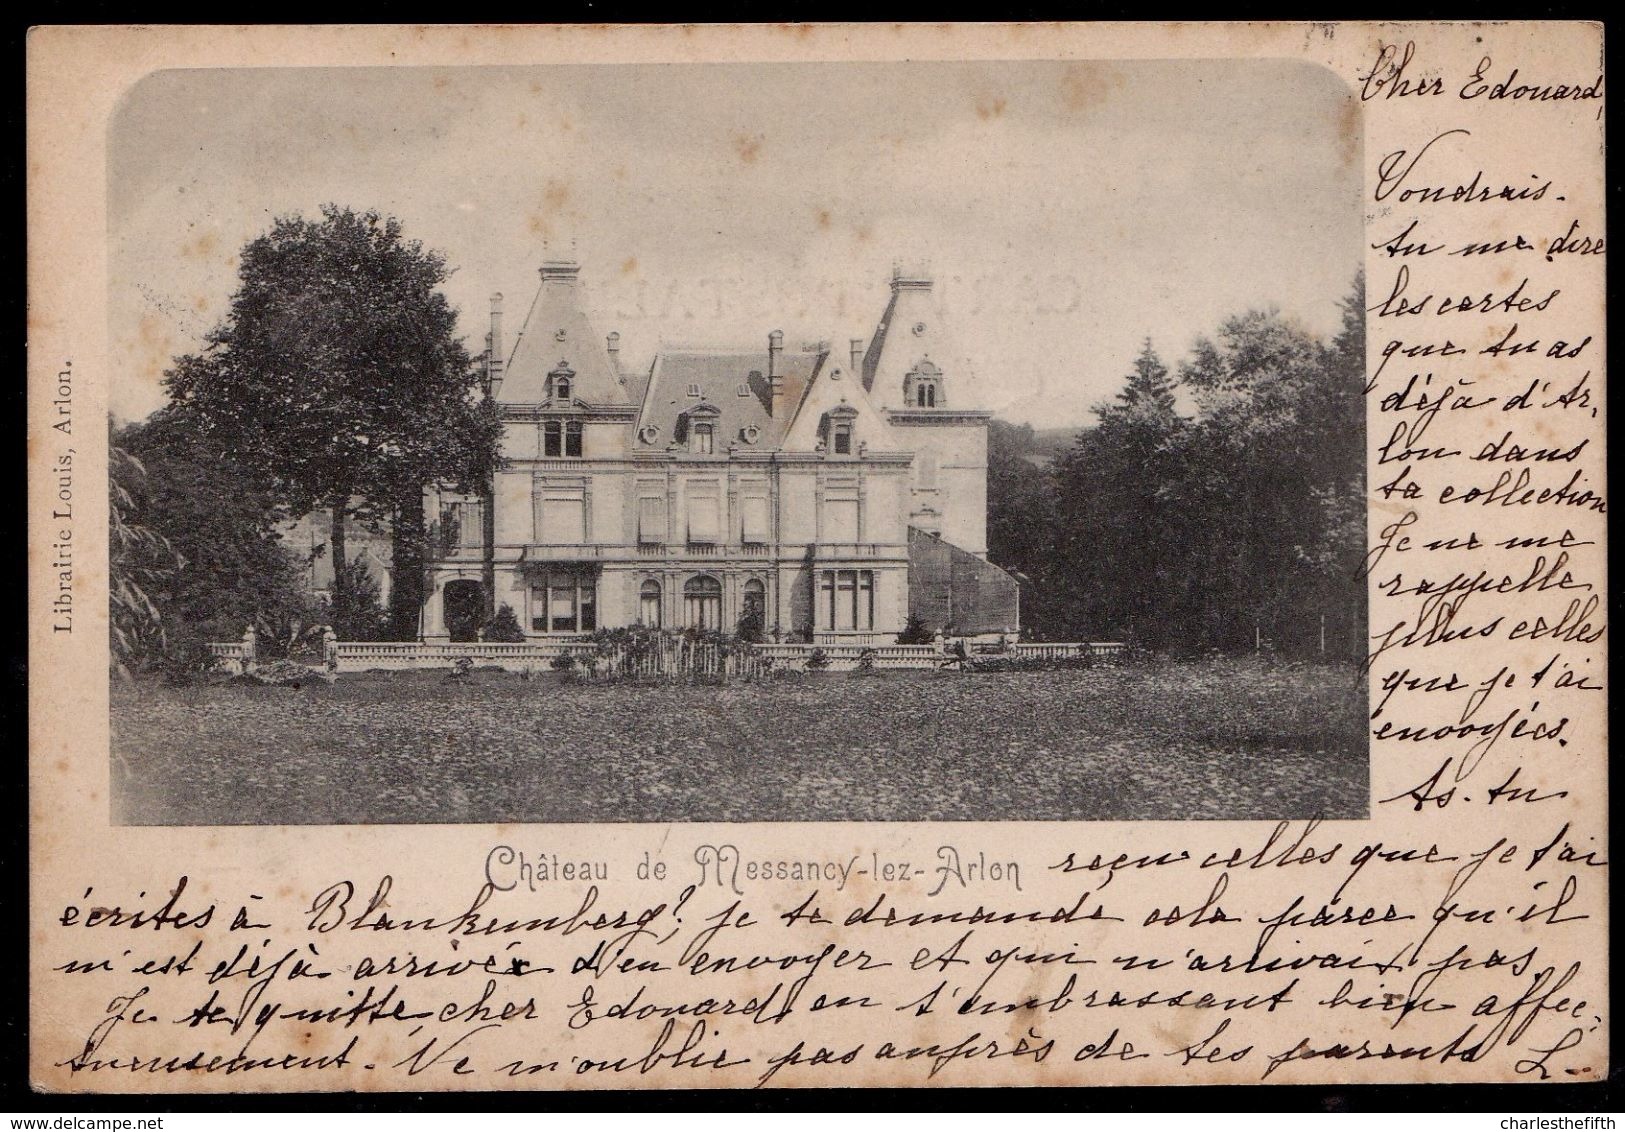 Librairie Louis, Arlon.
Château de Messancy-lez-Arlon
Cher Edouard,
Voudrais-
tu me dire
les cartes
que tu as
déjà d'Ar-
lon dans
ta collection
Je ne me
rappelle
plus celles
que je t'ai
envoyées.
As-tu
reçu celles que je t'ai
écrites à Blankemberg?, je te demande cela parce qu'il
m'est déjà arrivé d'en envoyer et qui n'arrivait pas
Je te quitte, cher Edouard, en t'embrassant bien affec-
tueusement. Ne m'oublie pas auprès de tes parents L.
www.delcampe.net
charlesthefifth